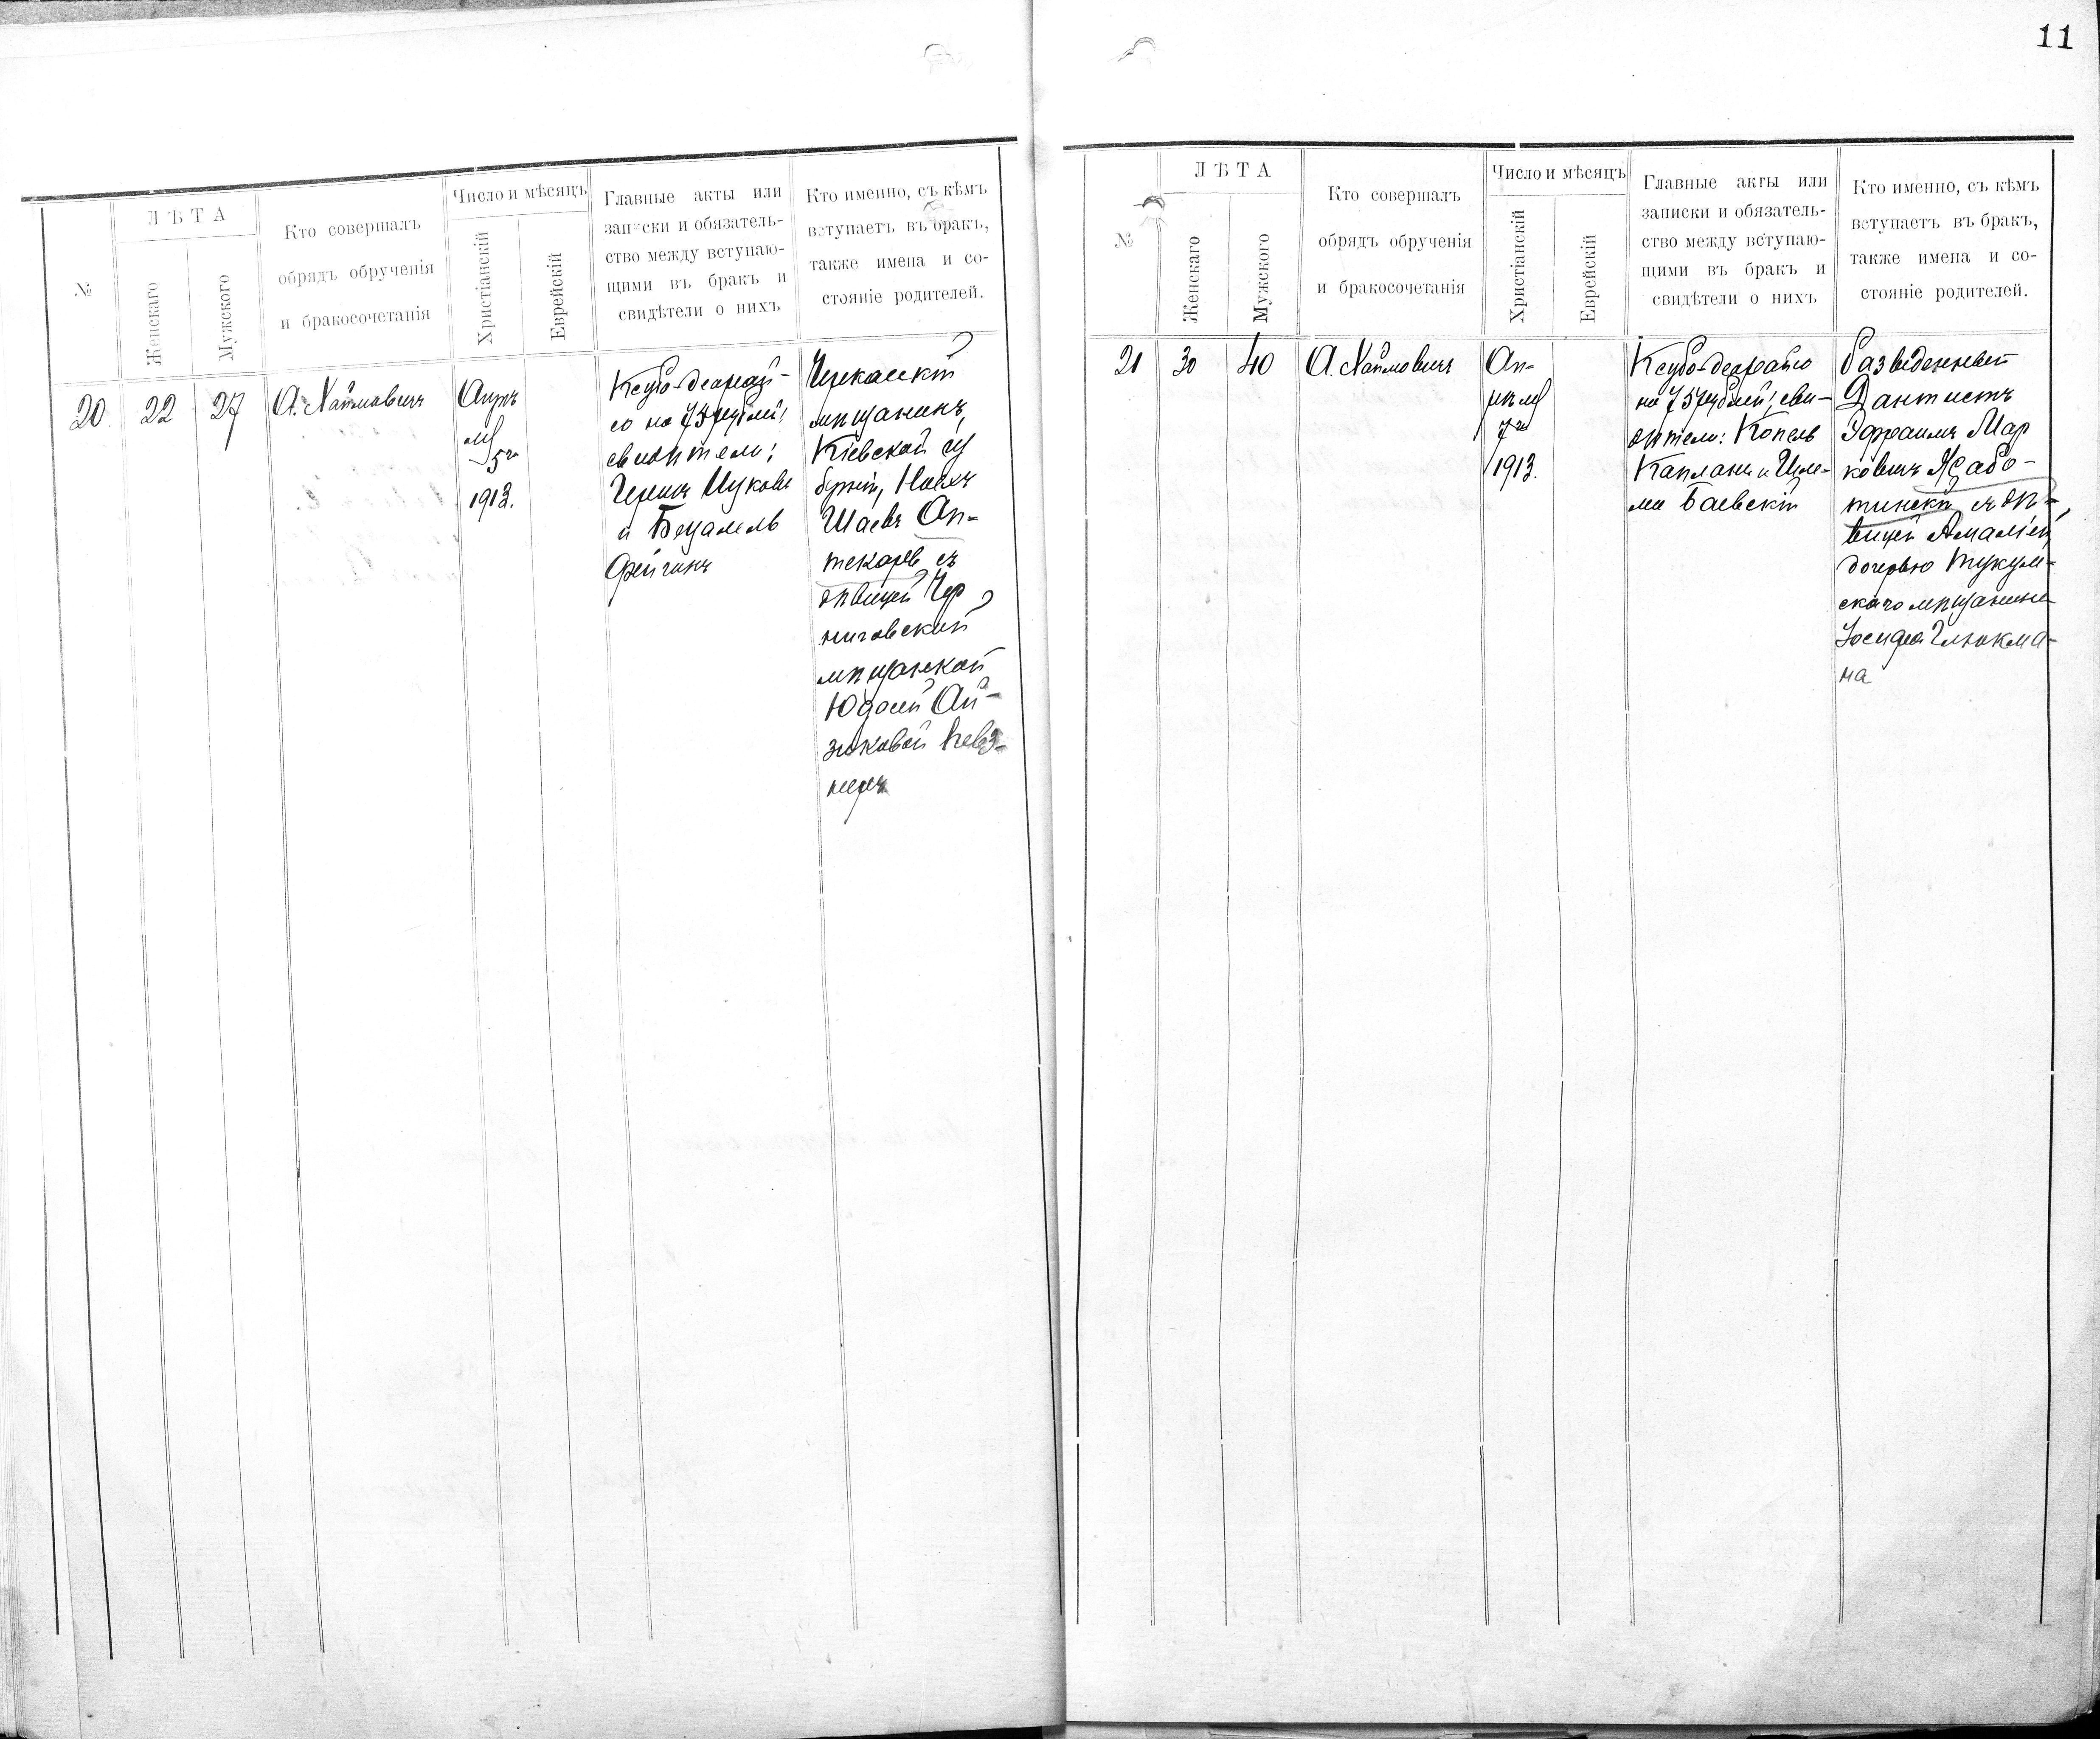 11
№
ЛѢТА
Женскаго
Мужского
Кто совершалъ
обрядъ обрученія
и бракосочетанія
Число и мѣсяцъ
Христіанскій
Еврейскій
Главные акты или
записки и обязатель-
ство между вступаю-
щими въ бракъ и
свидѣтели о нихъ
Кто именно, съ кѣмъ
вступаетъ въ бракъ,
также имена и со-
стояніе родителей.
20
22
27
А. Хаймовичъ
Апрѣ
ля
5го
1913.
на 75 рублей;
свидѣтели:
и Бецалель
Фейгинъ
Черкасскій
мѣщанинъ,
Кіевской гу
берніи, Ноахъ
Шаевъ Ап-
текарь съ
дѣвицей Чер
ниговской
мѣщанкой
Юдасей Ай-
зиковой Певз-
неръ
№
ЛѢТА
Женскаго
Мужского
Кто совершалъ
обрядъ обрученія
и бракосочетанія
Число и мѣсяцъ
Христіанскій
Еврейскій
Главные акты или
записки и обязатель-
ство между вступаю-
щими въ бракъ и
свидѣтели о нихъ
Кто именно, съ кѣмъ
вступаетъ въ бракъ,
также имена и со-
стояніе родителей.
21
30
40
А. Хаймовичъ
Ап-
рѣля
7го
1913.
Ксубо-деорайсо
на 75 рублей; сви-
дѣтели: Копель
Капланъ и Шле-
ма Баевскій
Разведенный
Дантистъ
Эфраимъ Мар
ковичъ Жабо-
тинскій съ дѣ-
вицей Амаліей,
дочерью Тукум-
скаго мѣщанина
Іосифа Глюкма-
на